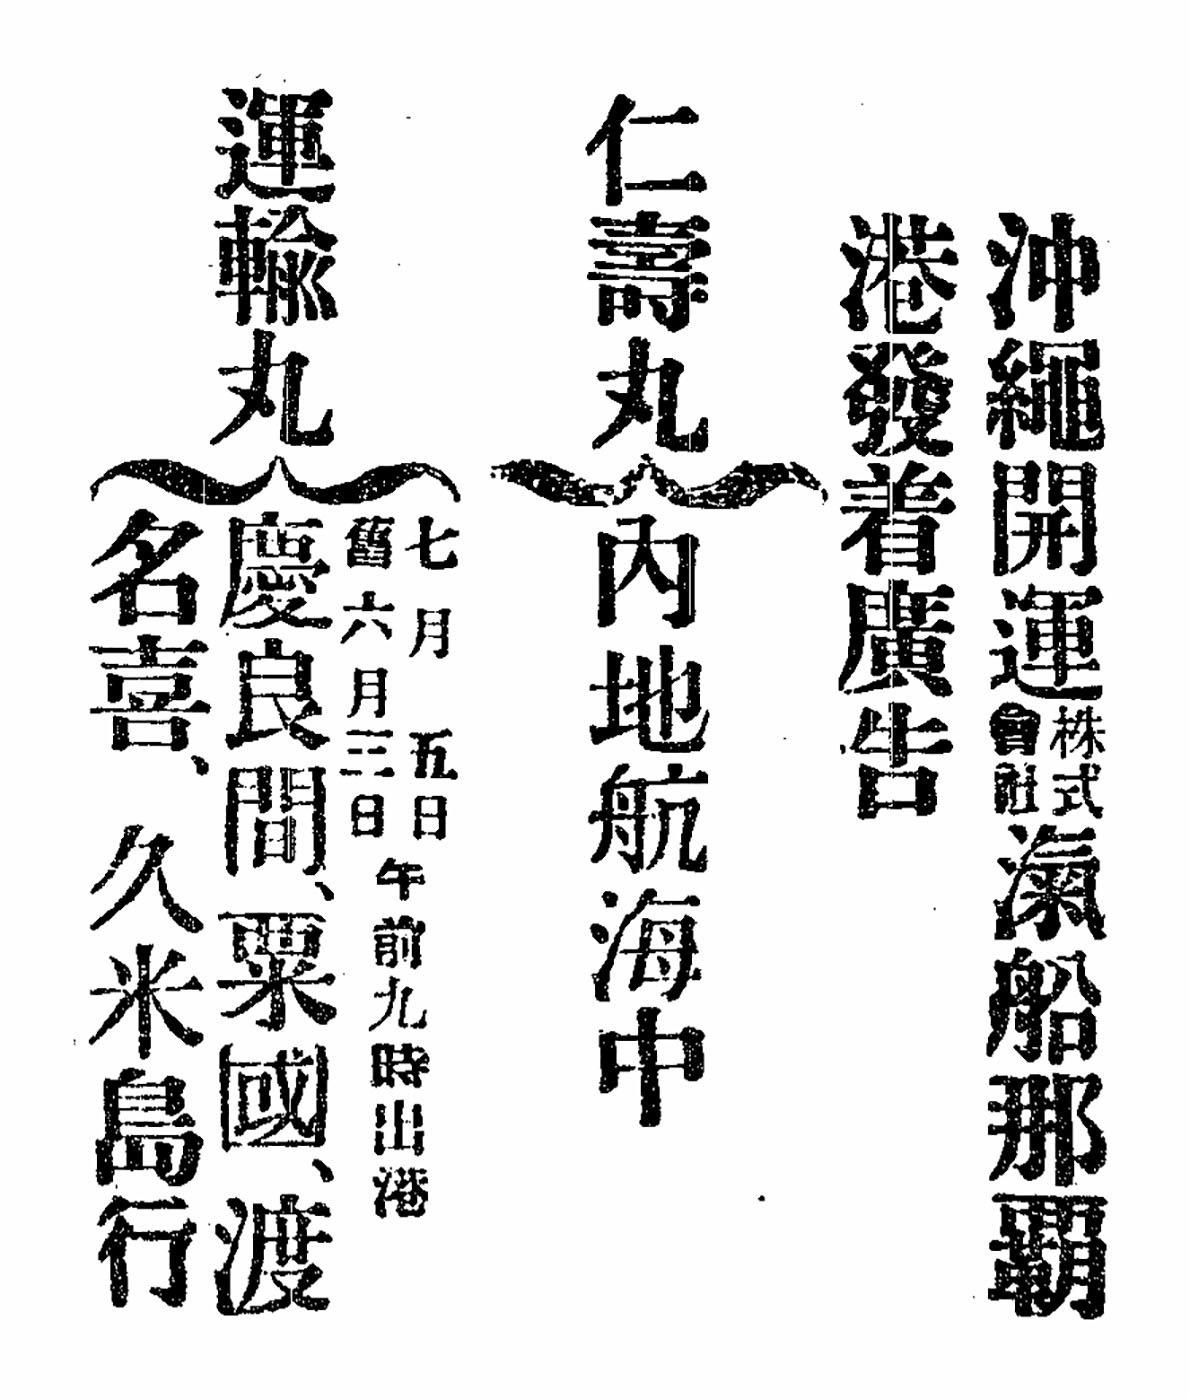 沖繩開運株式會社滊船那覇
港發着廣告
仁壽丸
內地航海中
運輸丸
七月五日
舊六月三日
午前九時出港
慶良間、粟國、渡
名喜、久米島行